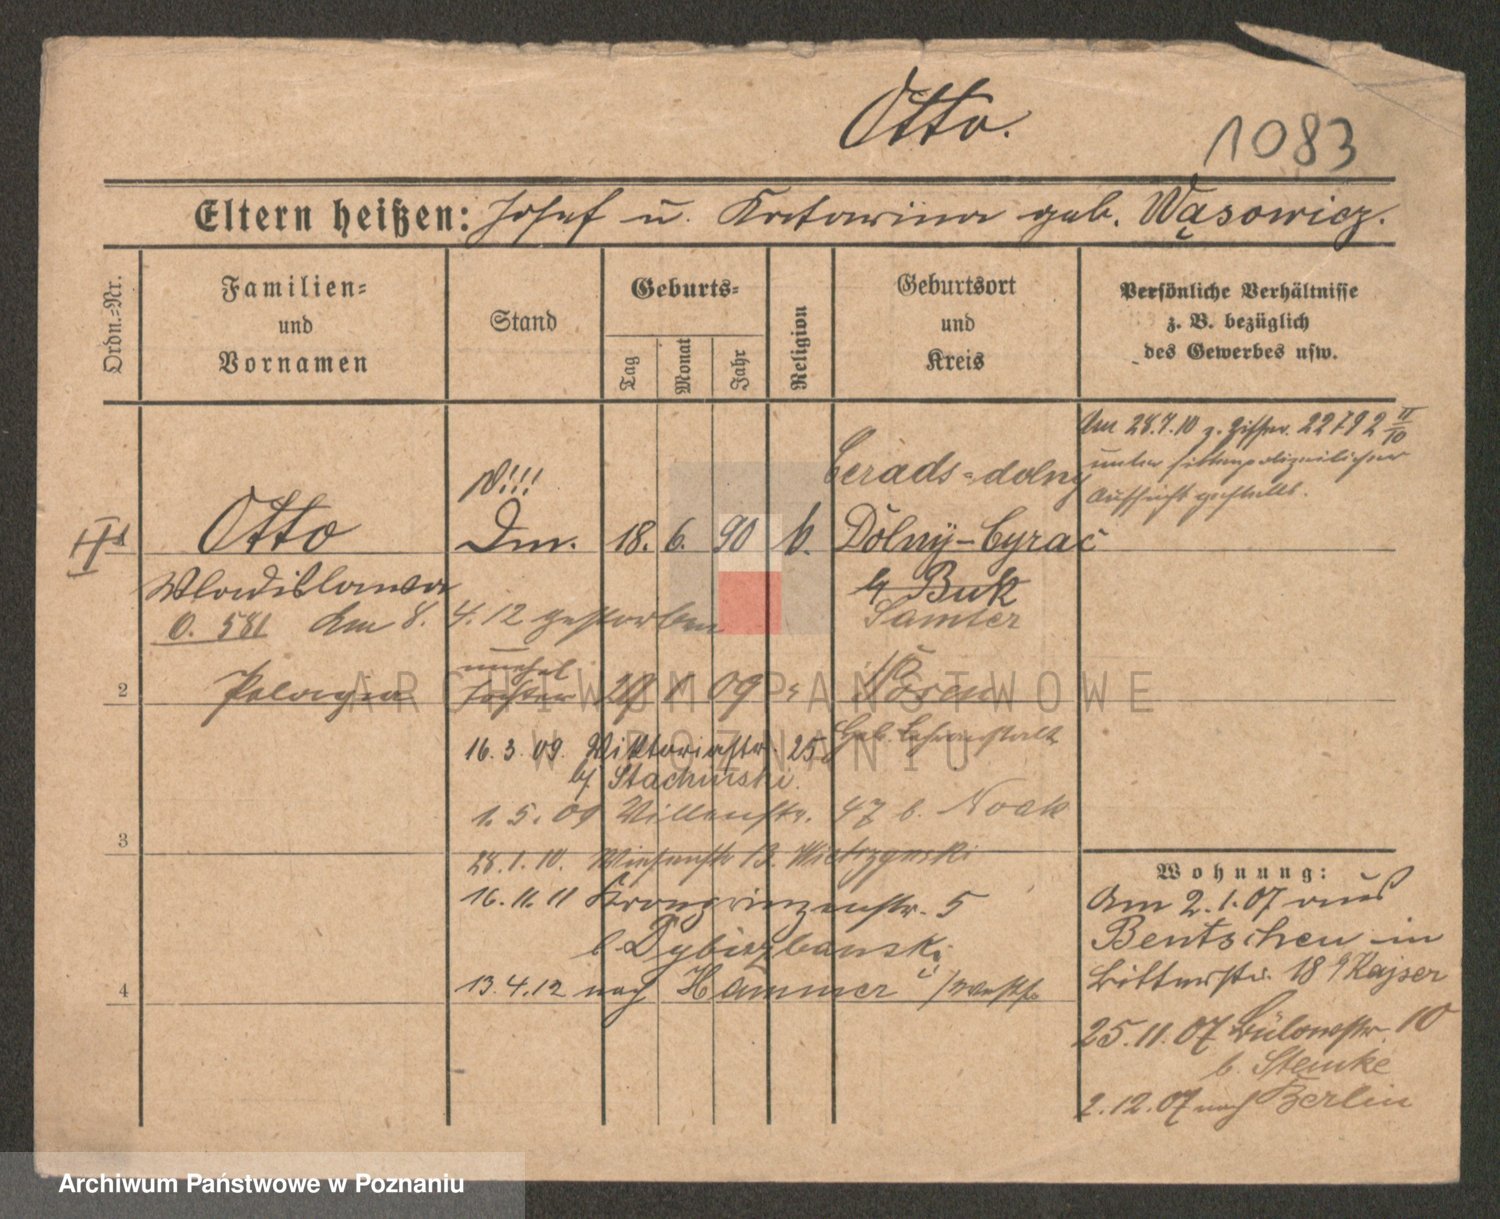 Otto.
1083
Eltern heißen: Josef u. Katarina geb. Wąsowicz.
Ordn.=Nr.
Familien=
und
Vornamen
Stand
Geburts=
Tag
Monat
Jahr
Religion
Geburtsort
und
Kreis
Persönliche Verhältnisse
z. B. bezüglich
des Gewerbes usw.
Am 28.7.10 z. Ziffer. 22792 II/10
unter sittenpolizeilicher
Aufsicht gestellt.
Cerads=dolny
Otto
18. 6. 90
Dolny-Cyrac
Wladislawa
b/ Buk
Samter
0. 581 Am 8. 4.12 gestorben
2
Pelagia
unehel
Tochter
09
Posen
16.3.09. Viktoriastr. 25
b/ Stachurski.
1.5.09 47 b. Noak
3
28.1.10. Wiesenstr 13.
16.11.11 Kronprinzenstr. 5
4
13.4.12 nach Hammer
Wohnung:
Am 2.1.07 aus
Bentschen in
Ritterstr. 18 Kajser
25.11.07 Bülowstr. 10
b. Stemke
2.12.07 nach Berlin
ARCHIWUM PAŃSTWOWE
W POZNANIU
Archiwum Państwowe w Poznaniu